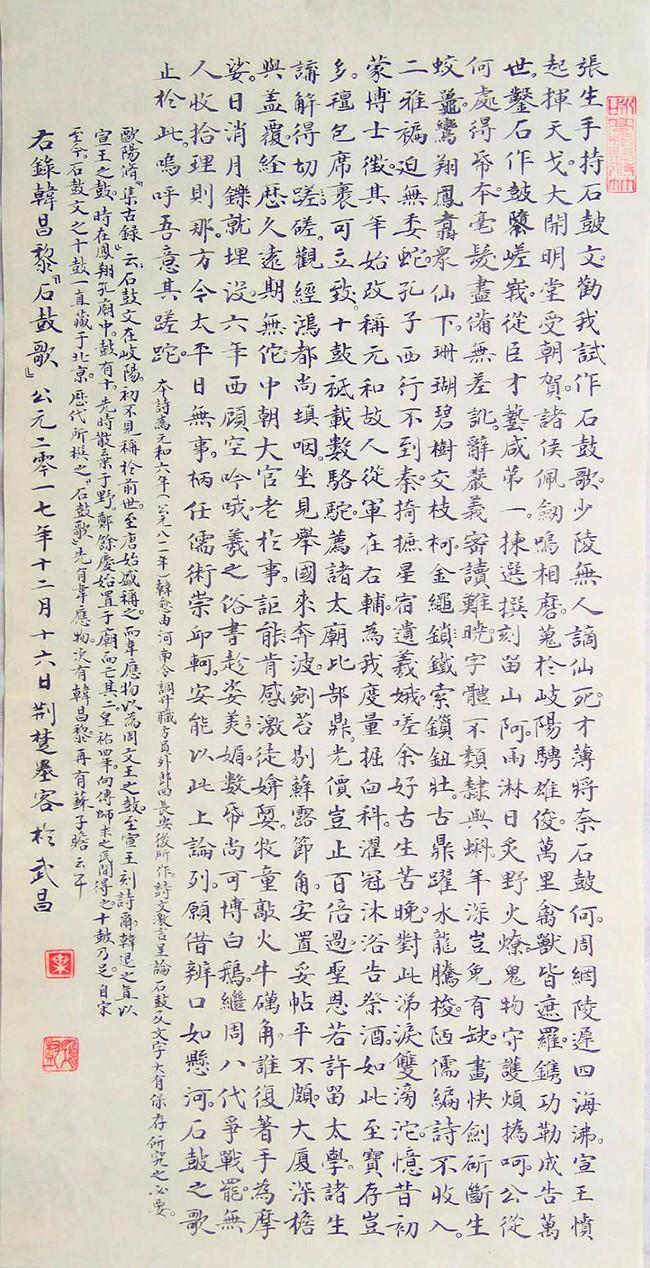 張生手持石鼓文。勸我試作石鼓歌。少陵無人謫仙死。才薄將奈石鼓何。周綱陵遲四海沸。宣王憤
起揮天戈。大開明堂受朝賀。諸侯佩劒鳴相磨。蒐於岐陽騁雄俊。萬里禽獸皆遮羅。鐫功勒成告萬
世。鑿石作鼓隳嵯峨。從臣才藝咸第一。揀選撰刻留山阿。雨淋日炙野火燎。鬼物守護煩撝呵。公從
何處得帋本。毫髮盡備無差訛。辭嚴義密讀難曉。字體不類隸與蝌。年深豈免有缺畫。快劍斫斷生
蛟鼉。鸞翔鳳翥眾仙下。珊瑚碧樹交枝柯。金繩鎖鐵索鎖鈕壯。古鼎躍水龍騰梭。陋儒編詩不收入。
二雅褊迫無委蛇。孔子西行不到秦。掎摭星宿遺羲娥。嗟余好古生苦晚。對此涕淚雙滂沱。憶昔初
蒙博士徵。其年始改稱元和。故人從軍在右輔。為我度量掘臼科。濯冠沐浴告祭酒。如此至寶存豈
多。氊包席裹可立致。十鼓祇載數駱駝。薦諸太廟比郜鼎。光價豈止百倍過。聖恩若許留太學。諸生
講解得切磋。觀經鴻都尚填咽。坐見舉國來奔波。剜苔剔蘚露節角。安置妥帖平不頗。大廈深檐
與蓋覆。經歷久遠期無佗。中朝大官老於事。詎能肯感激徒媕婀。牧童敲火牛礪角。誰復著手為摩
娑。日消月鑠就埋沒。六年西顧空吟哦。羲之俗書趁姿美媚。數帋尚可博白鵝。繼周八代爭戰罷。無
人收拾理則那。方今太平日無事。柄任儒術崇邱軻。安能以此上論列。願借辨口如懸河。石鼓之歌
止於此。嗚呼吾意其蹉跎。
本詩為元和六年(公元八一一年)韓愈由河南令調升職方員外郎回長安後所作。詩文言呈論石鼓及文字大有保存研究之必要。
歐陽脩『集古録』云:石鼓文在岐陽。初不見稱於前世。至唐始盛稱之。而韋應物以為周文王之鼓。至宣王刻詩爾。韓退之直以
宣王之鼓。時在鳳翔孔廟中。鼓有十。先時散棄于野。鄭餘慶始置于廟而亡其二。皇祐四年。向傳師求之民間得之十鼓乃足。自宋
至今。石鼓文之十鼓一直藏于北京。歷代所撰之『石鼓歌』先有韋應物。次有韓昌黎。再有蘇子瞻云乎
右錄韓昌黎『石鼓歌』公元二零一七年十二月十六日荆楚墨客於武昌